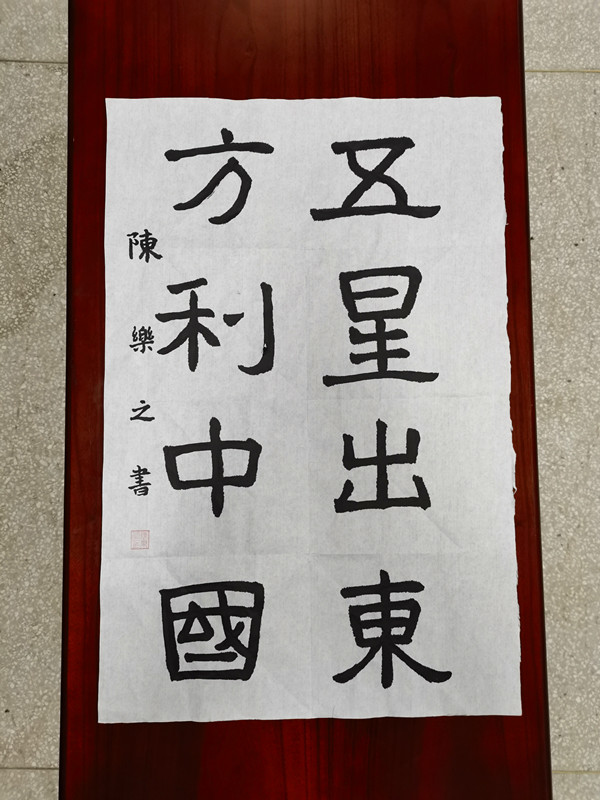 五星出東
方利中國
陳樂之書